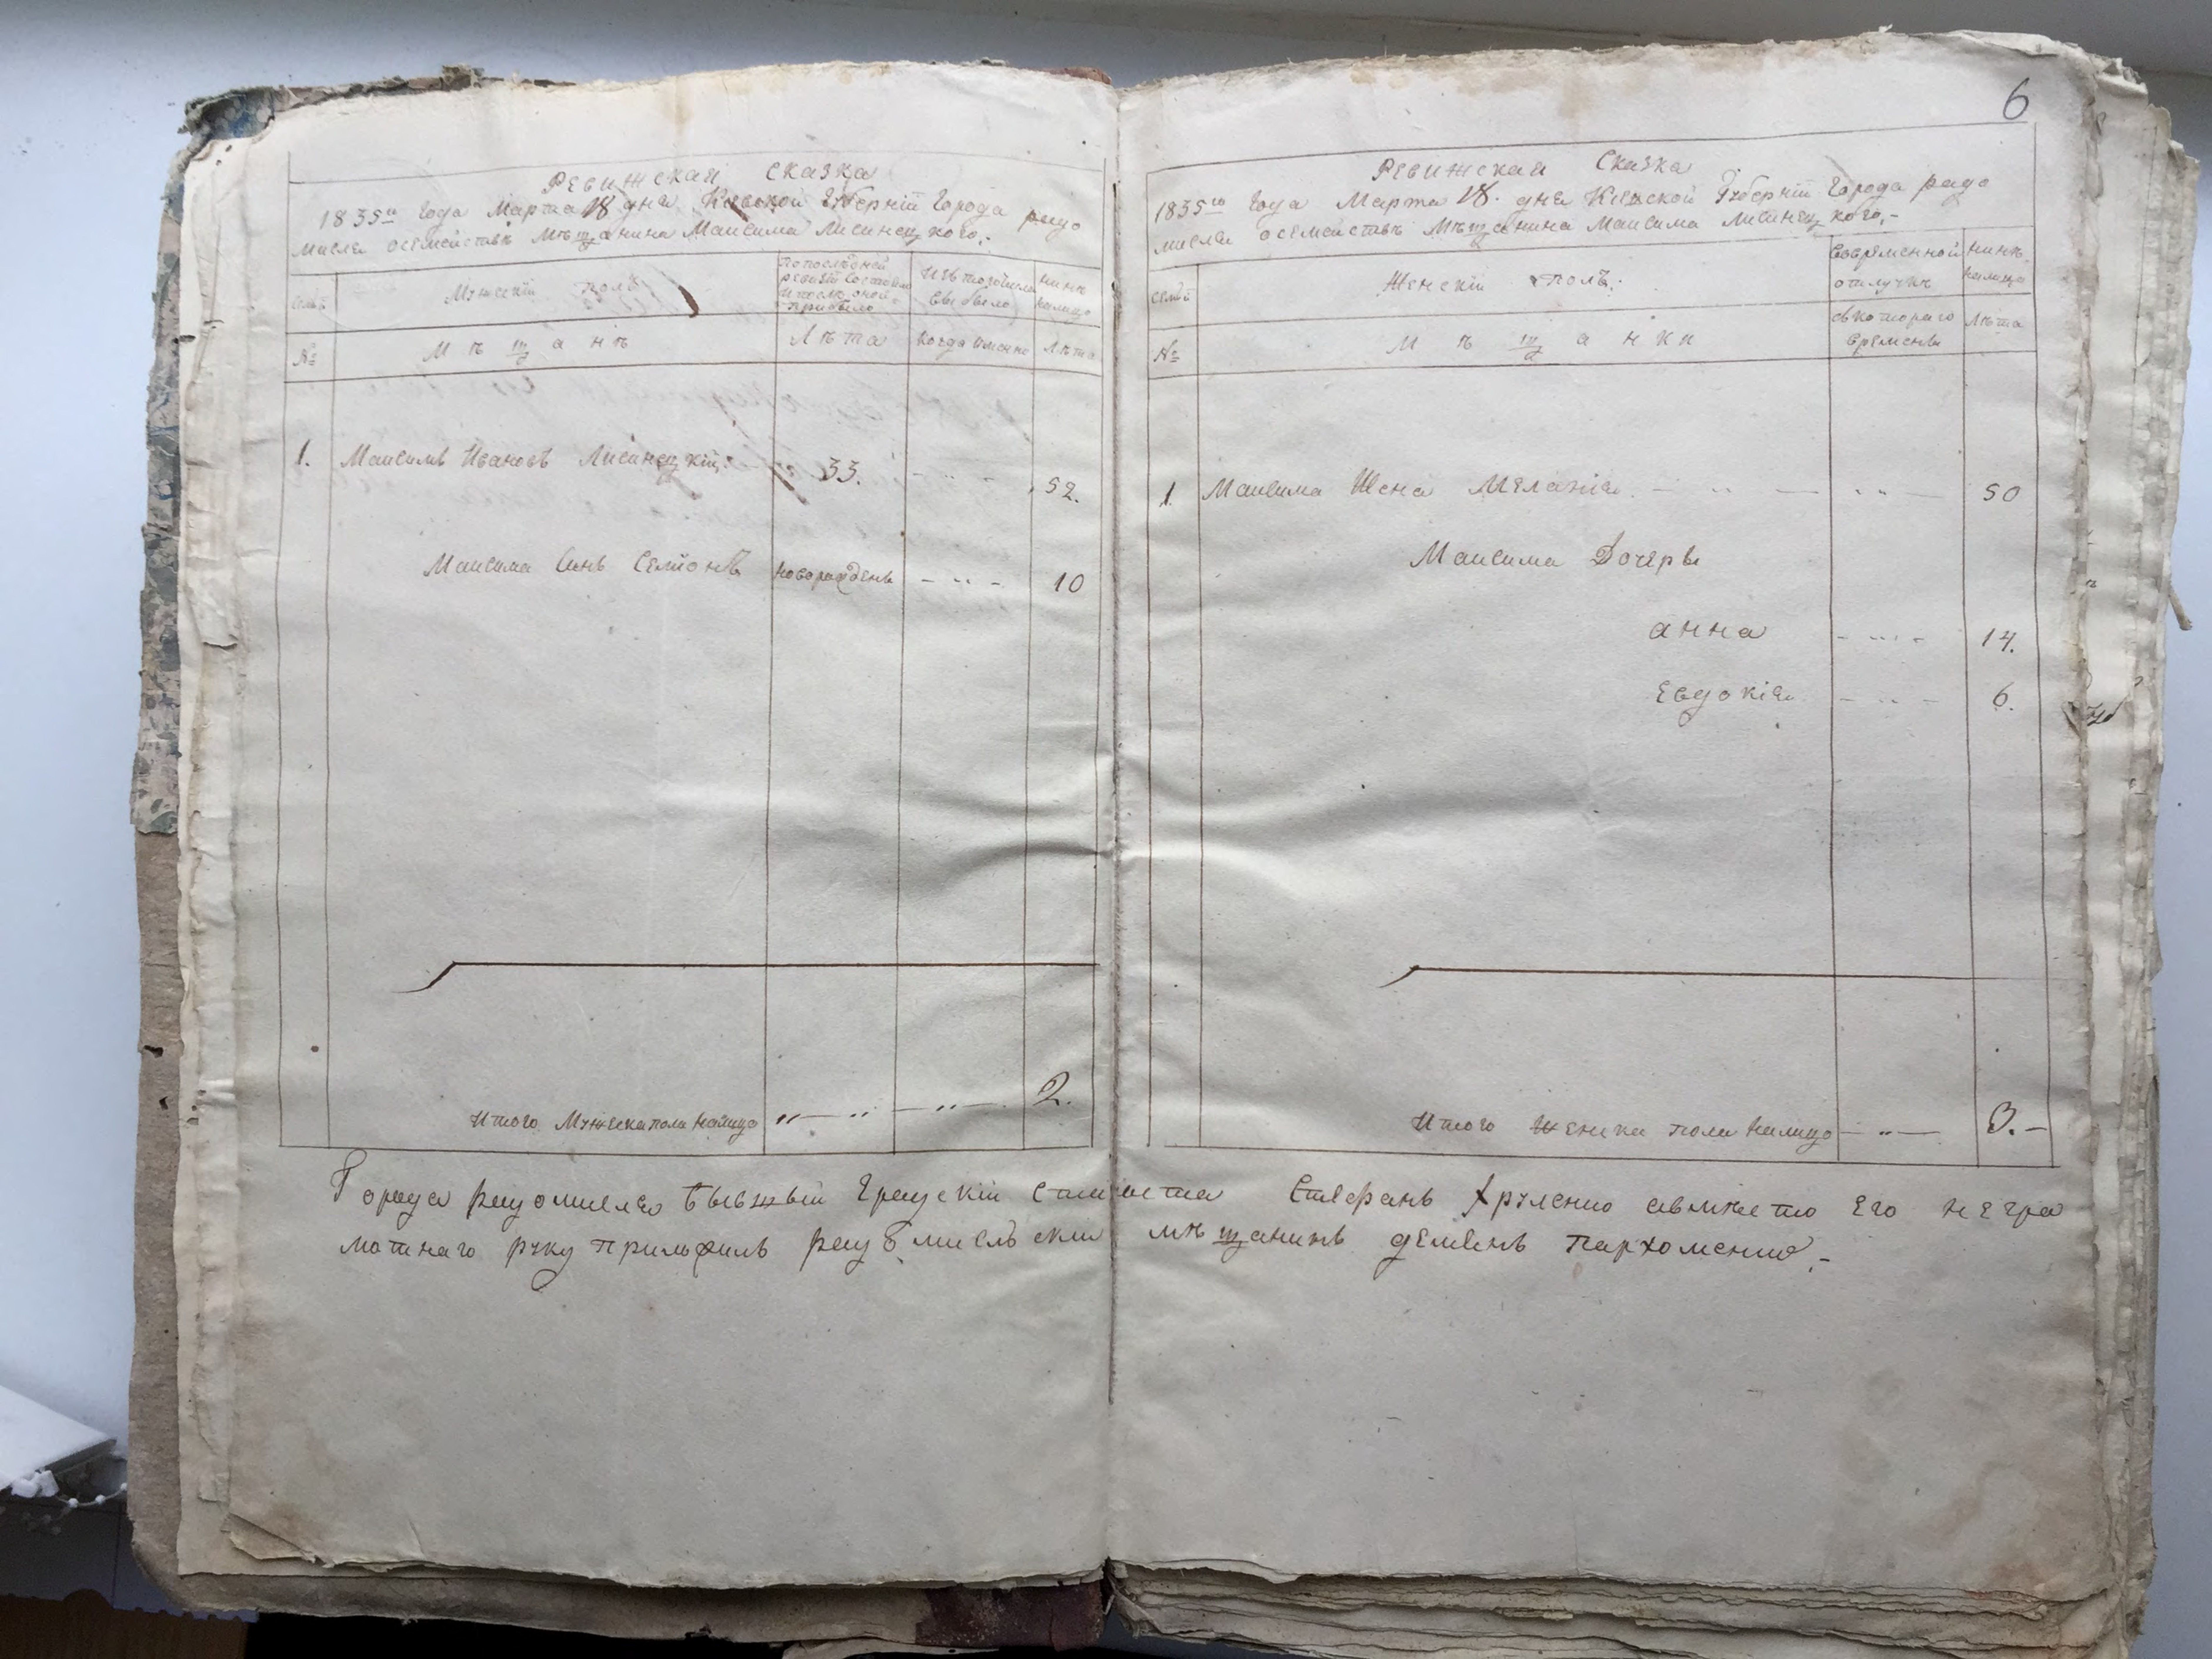 Ревижская Сказка
1835го года Марта 18 дня Киевской Губернiй Города радо
мисля осемействѣ Мѣщанина Максима Лисинецкого.-
Семьи
Мужескiй полъ
Попослѣдней ревизiй Состояло Ипослѣ оной прибыло
Изъ тогочисла выбыло
Нинѣ налицо
№
Мѣщанѣ
Лѣта
Когда Именно
Лѣта
1. Максимъ Ивановъ Лисинецкiй. 33. - „ - 52.
Максима Синъ Семionъ новорожденъ - „ - 10
Итого Мужеска пола налицо „ - „ - „ - 2.
6
Ревижская Сказка
1835го года Марта 18. дня Киевской Губернiй Города радо
мисля осемействѣ Мѣщанина Максима Лисинецкого.-
Семьи
Женскiй полъ.
Вовременной отлучкѣ
Нинѣ налицо
№
Мѣщанки
Съкотораго времены
Лѣта
1. Максима Жена Меланiя - „ - „ - 50
Максима Дочеры
анна - „ - 14.
Евдокiя - „ - 6.
Итого Женска пола налицо - „ - 3.-
Города радомисля бывжый градскiй Староста Стефанъ Хруленко авмѣсто Его Негра
мотнаго руку приложилъ радомисльский мѣщанинъ демянъ пархоменко.-